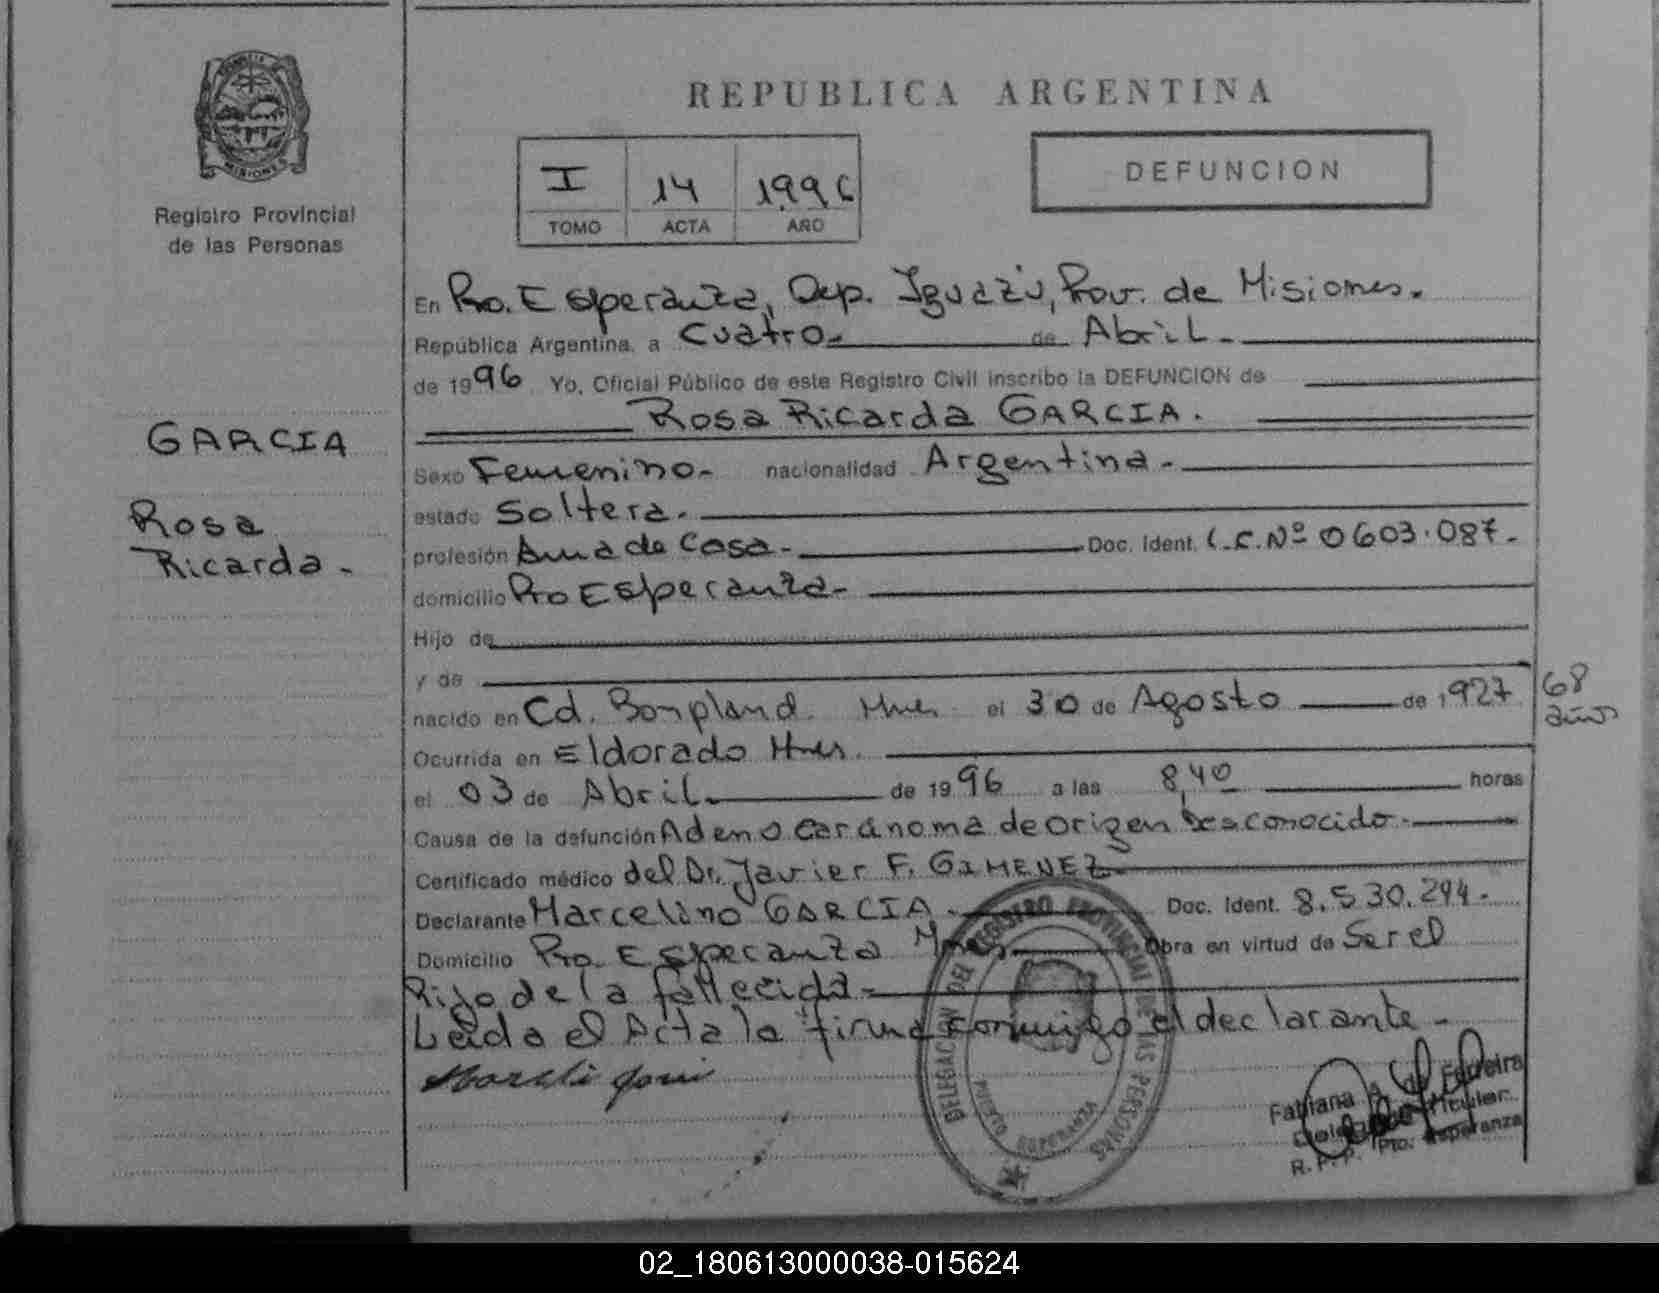 REPUBLICA ARGENTINA
MISIONES
Registro Provincial
de las Personas
I 14 1996
TOMO ACTA AÑO
DEFUNCION
GARCIA
Rosa
Ricarda.-
En Pto. Esperanza, Dep. Iguazú, Prov. de Misiones.
República Argentina, a Cuatro.- de Abril.-
de 1996 Yo, Oficial Público de este Registro Civil inscribo la DEFUNCION de
Rosa Ricarda GARCIA.
Sexo Femenino.- nacionalidad Argentina.-
estado Soltera.
profesión Ama de Casa.- Doc. Ident. L.C.Nº 0603.087.-
domicilio Pto Esperanza.-
Hijo de
y de
nacido en Cd. Bonpland. Mnes. el 30 de Agosto de 1927 68
años
Ocurrida en Eldorado Mnes.
el 03 de Abril. de 1996 a las 8,40 horas
Causa de la defunción Adeno carcinoma de origen desconocido.
Certificado médico del Dr. Javier F. GIMENEZ
Declarante Marcelino GARCIA.- Doc. Ident. 8.530.294.-
Domicilio Pto. Esperanza Mnes. Obra en virtud de Ser el
Hijo de la fallecida.-
Leida el Acta la firma conmigo el declarante.-
DELEGACION DEL REGISTRO PROVINCIAL DE LAS PERSONAS
PUERTO ESPERANZA
Fabiana A. de Ferreira
R. P. P. Pto. Esperanza
02_180613000038-015624